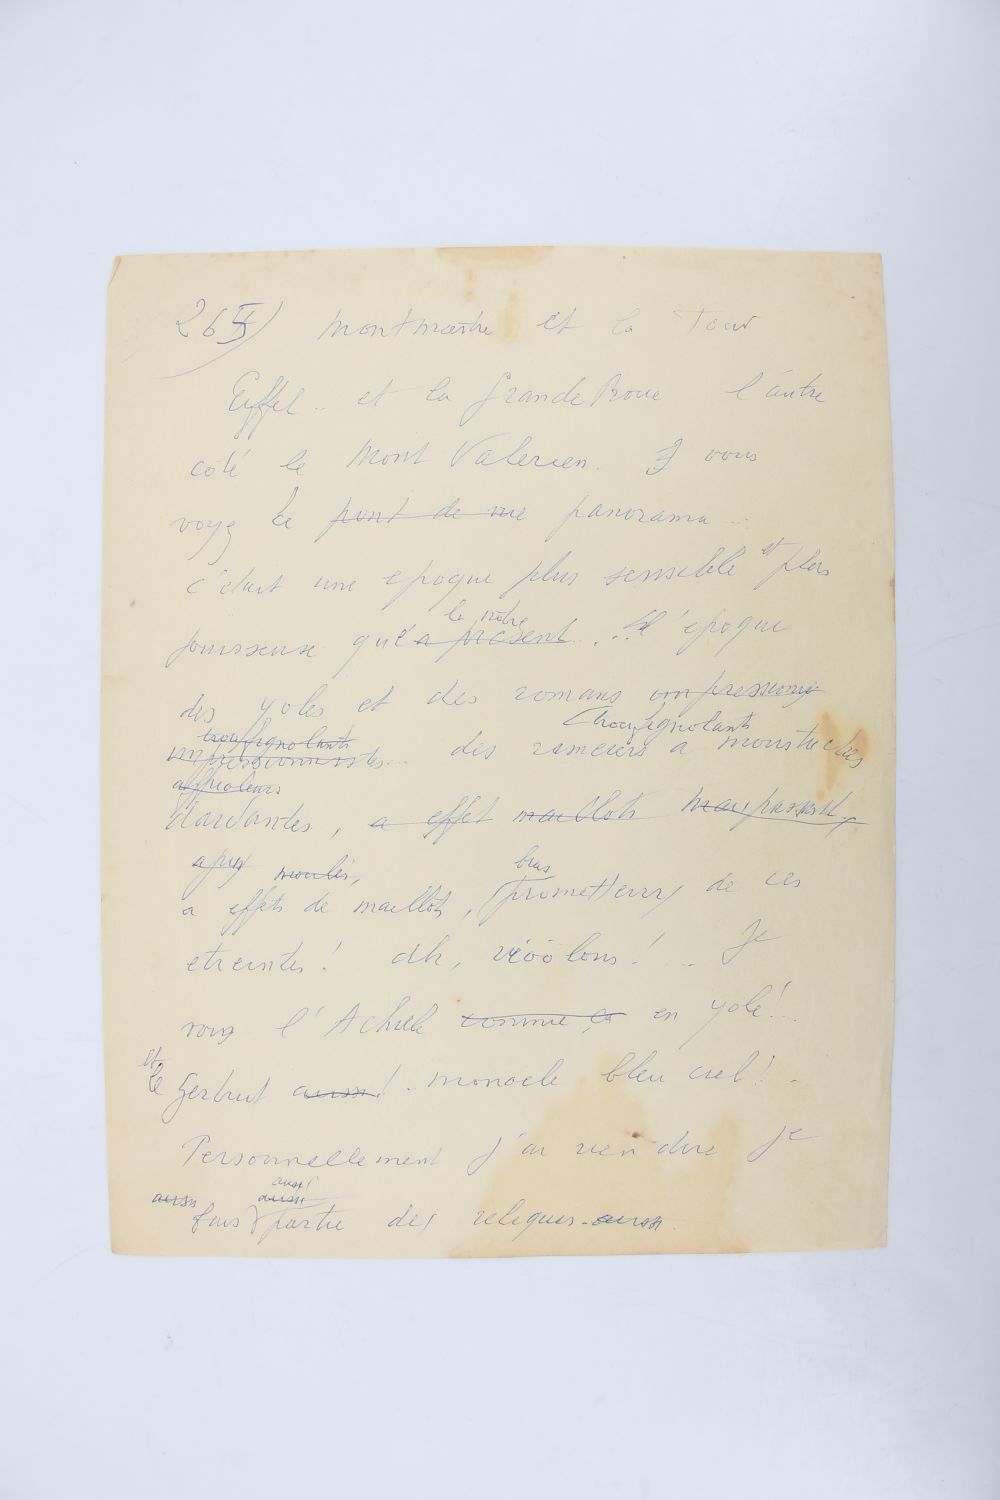 montmartre et la Tour
Eiffel .. et la Grande Roue l'autre
côté le Mont Valerien. vous
voyez le panorama ...
c'était une epoque plus sensible et plus
la notre
jouisseuse que a présent . l'epoque
des yoles et des romans impressionis
troufignolants
troufignolants
impressionnistes... des rameurs a moustaches
affrioleurs
dardantes, a effet maillots maupassant,
moulés,
bras
a effets de maillots, prometteurs de ces
etreintes! ah, viöölons! ... Je
vous l'Achille comme ça en yole! ..
et
le Gerbut aussi! . monocle bleu ciel! .
Personnellement j'ai rien dire je
aussi
aussi aussi
fais partie des reliques aussi.